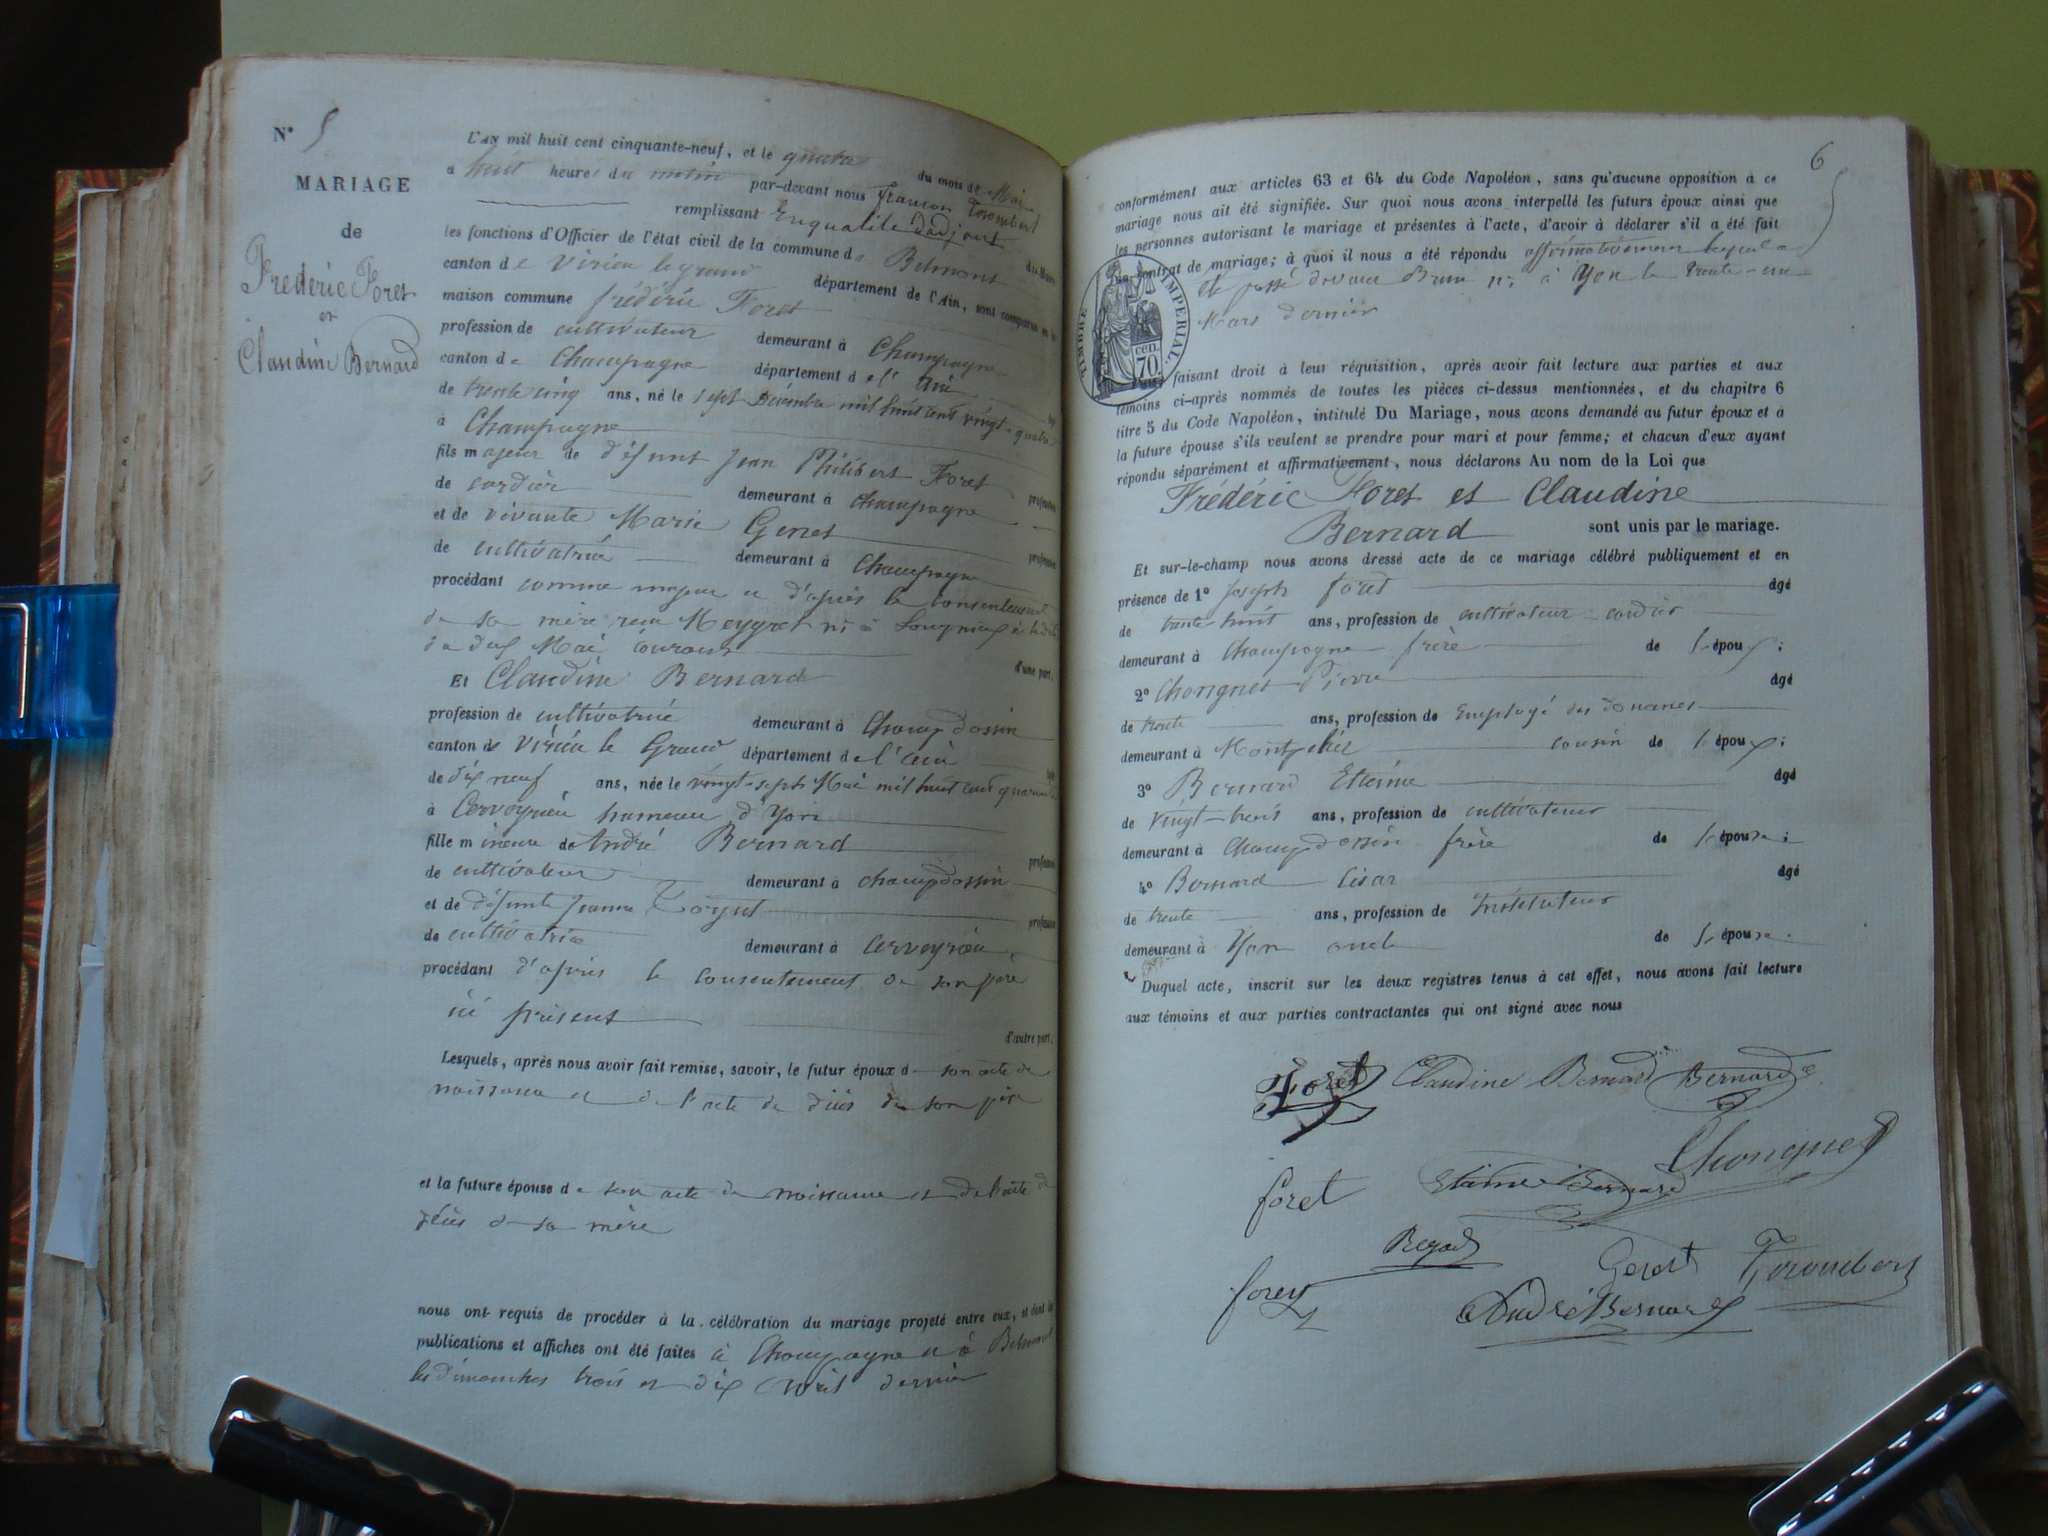 N° 5
MARIAGE
de
Frédéric Foret
et
Claudine Bernard
L'AN mil huit cent cinquante-neuf, et le quatre du mois de Mai
à huit heures du matin par-devant nous françon Toromber
remplissant En qualité d'adjoint du Maire
les fonctions d'Officier de l'état civil de la commune de Belmont
canton de Virieu le grand département de l'Ain, sont comparus en la
maison commune frédéric Foret
profession de cultivateur demeurant à Champagne
canton de Champagne département de l'Ain
de trente cinq ans, né le sept Décembre mil huit cent vingt-quatre
à Champagne
fils majeur de défunt Jean Philibert Foret profession
de cordier demeurant à Champagne
et de vivante Marie Genet profession
de cultivatrice demeurant à Champagne
procédant comme majeur et d'après le consentement
de sa mère reçu Meygret nre à
du deux Mai courant d'une part,
Et Claudine Bernard
profession de cultivatrice demeurant à Champdossin
canton de Virieu le Grand département de l'ain
de dix neuf ans, née le vingt-sept Mai mil huit cent quarante
à Cerveyrieu hameau d'Yon
fille mineure de André Bernard profession
de cultivateur demeurant à champdossin
et de défunte Jeanne profession
de cultivatrice demeurant à Cerveyrieu
procédant d'après le consentement de son père
ici présent
d'autre part,
Lesquels, après nous avoir fait remise, savoir, le futur époux de son acte de
naissance et de l'acte de décès de son père
et la future épouse de son acte de naissance et de l'acte de
décès de sa mère
nous ont requis de procéder à la célébration du mariage projeté entre eux, et dont les
publications et affiches ont été faites à Champagne et à Belmont
les dimanches trois et dix avril dernier
6
5
conformément aux articles 63 et 64 du Code Napoléon, sans qu'aucune opposition à ce
mariage nous ait été signifiée. Sur quoi nous avons interpellé les futurs époux ainsi que
les personnes autorisant le mariage et présentes à l'acte, d'avoir à déclarer s'il a été fait
un contrat de mariage; à quoi il nous a été répondu affirmativement lequel a
été passé devant Brun nre à Yon le trente-un
Mars dernier
TIMBRE IMPERIAL.
70 cen.
faisant droit à leur réquisition, après avoir fait lecture aux parties et aux
témoins ci-après nommés de toutes les pièces ci-dessus mentionnées, et du chapitre 6
titre 5 du Code Napoléon, intitulé Du Mariage, nous avons demandé au futur époux et à
la future épouse s'ils veulent se prendre pour mari et pour femme; et chacun d'eux ayant
répondu séparément et affirmativement, nous déclarons Au nom de la Loi que
Frédéric Foret et Claudine
Bernard sont unis par le mariage.
Et sur-le-champ nous avons dressé acte de ce mariage célébré publiquement et en
présence de 1° Joseph foret âgé
de trente-huit ans, profession de cultivateur-cordier
demeurant à Champagne frère de l'époux;
2° Chongnet Pierre âgé
de trente ans, profession de Employé des douanes
demeurant à Montpelier cousin de l'époux;
3° Bernard Etienne âgé
de vingt-trois ans, profession de cultivateur
demeurant à Champdossin frère de l'épouse;
4° Bernard César âgé
de trente ans, profession de Instituteur
demeurant à Yon oncle de l'épouse.
Duquel acte, inscrit sur les deux registres tenus à cet effet, nous avons fait lecture
aux témoins et aux parties contractantes qui ont signé avec nous
Foret Claudine Bernard Bernard C
Chongnet
foret Etienne Bernard
forey Genet Toromber
André Bernard